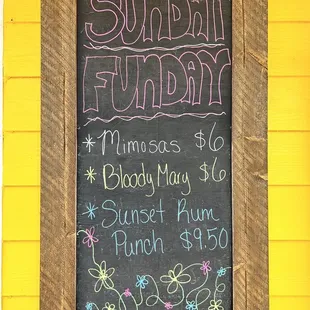 SUNDAY
FUNDAY
* Mimosas $6
* Bloody Mary $6
* Sunset Rum
Punch $9.50